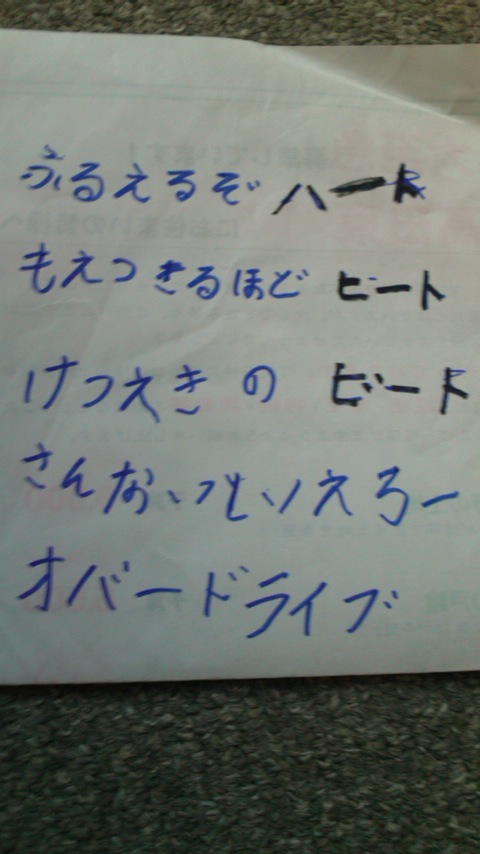 ふるえるぞ ハート
もえつきるほど ビート
けつえきの ビート
さんないっといえろー
オバードライブ